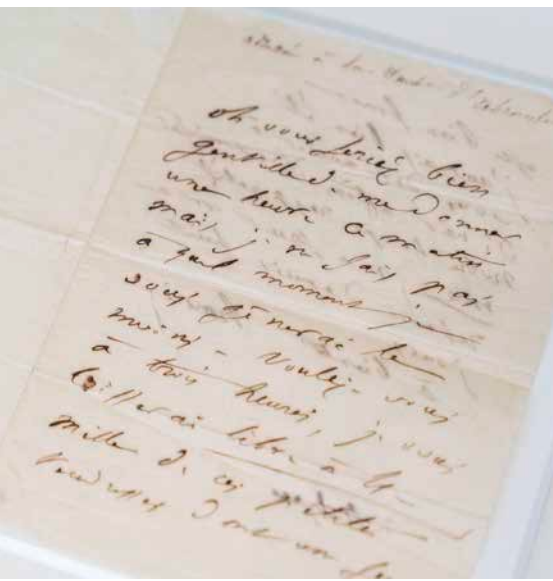 oh vous seriez bien
gentille de me donner
une heure ce matin
mais je ne sais pas
à quel moment je
vous gênerai le
moins - voulez-vous
à trois heures, je vous
laisserai libre à 4h
mille de ces petites
tendresses dont un